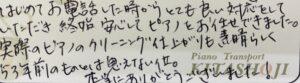 はじめてお電話した時からとても良い対応をして
いただき 終始 安心してピアノをお任せできました。
実際のピアノのクリーニング仕上がりも素晴らしく
53年前のものとは思えない位。
本当にありがとうございました
Piano Transport
KITASHOJI